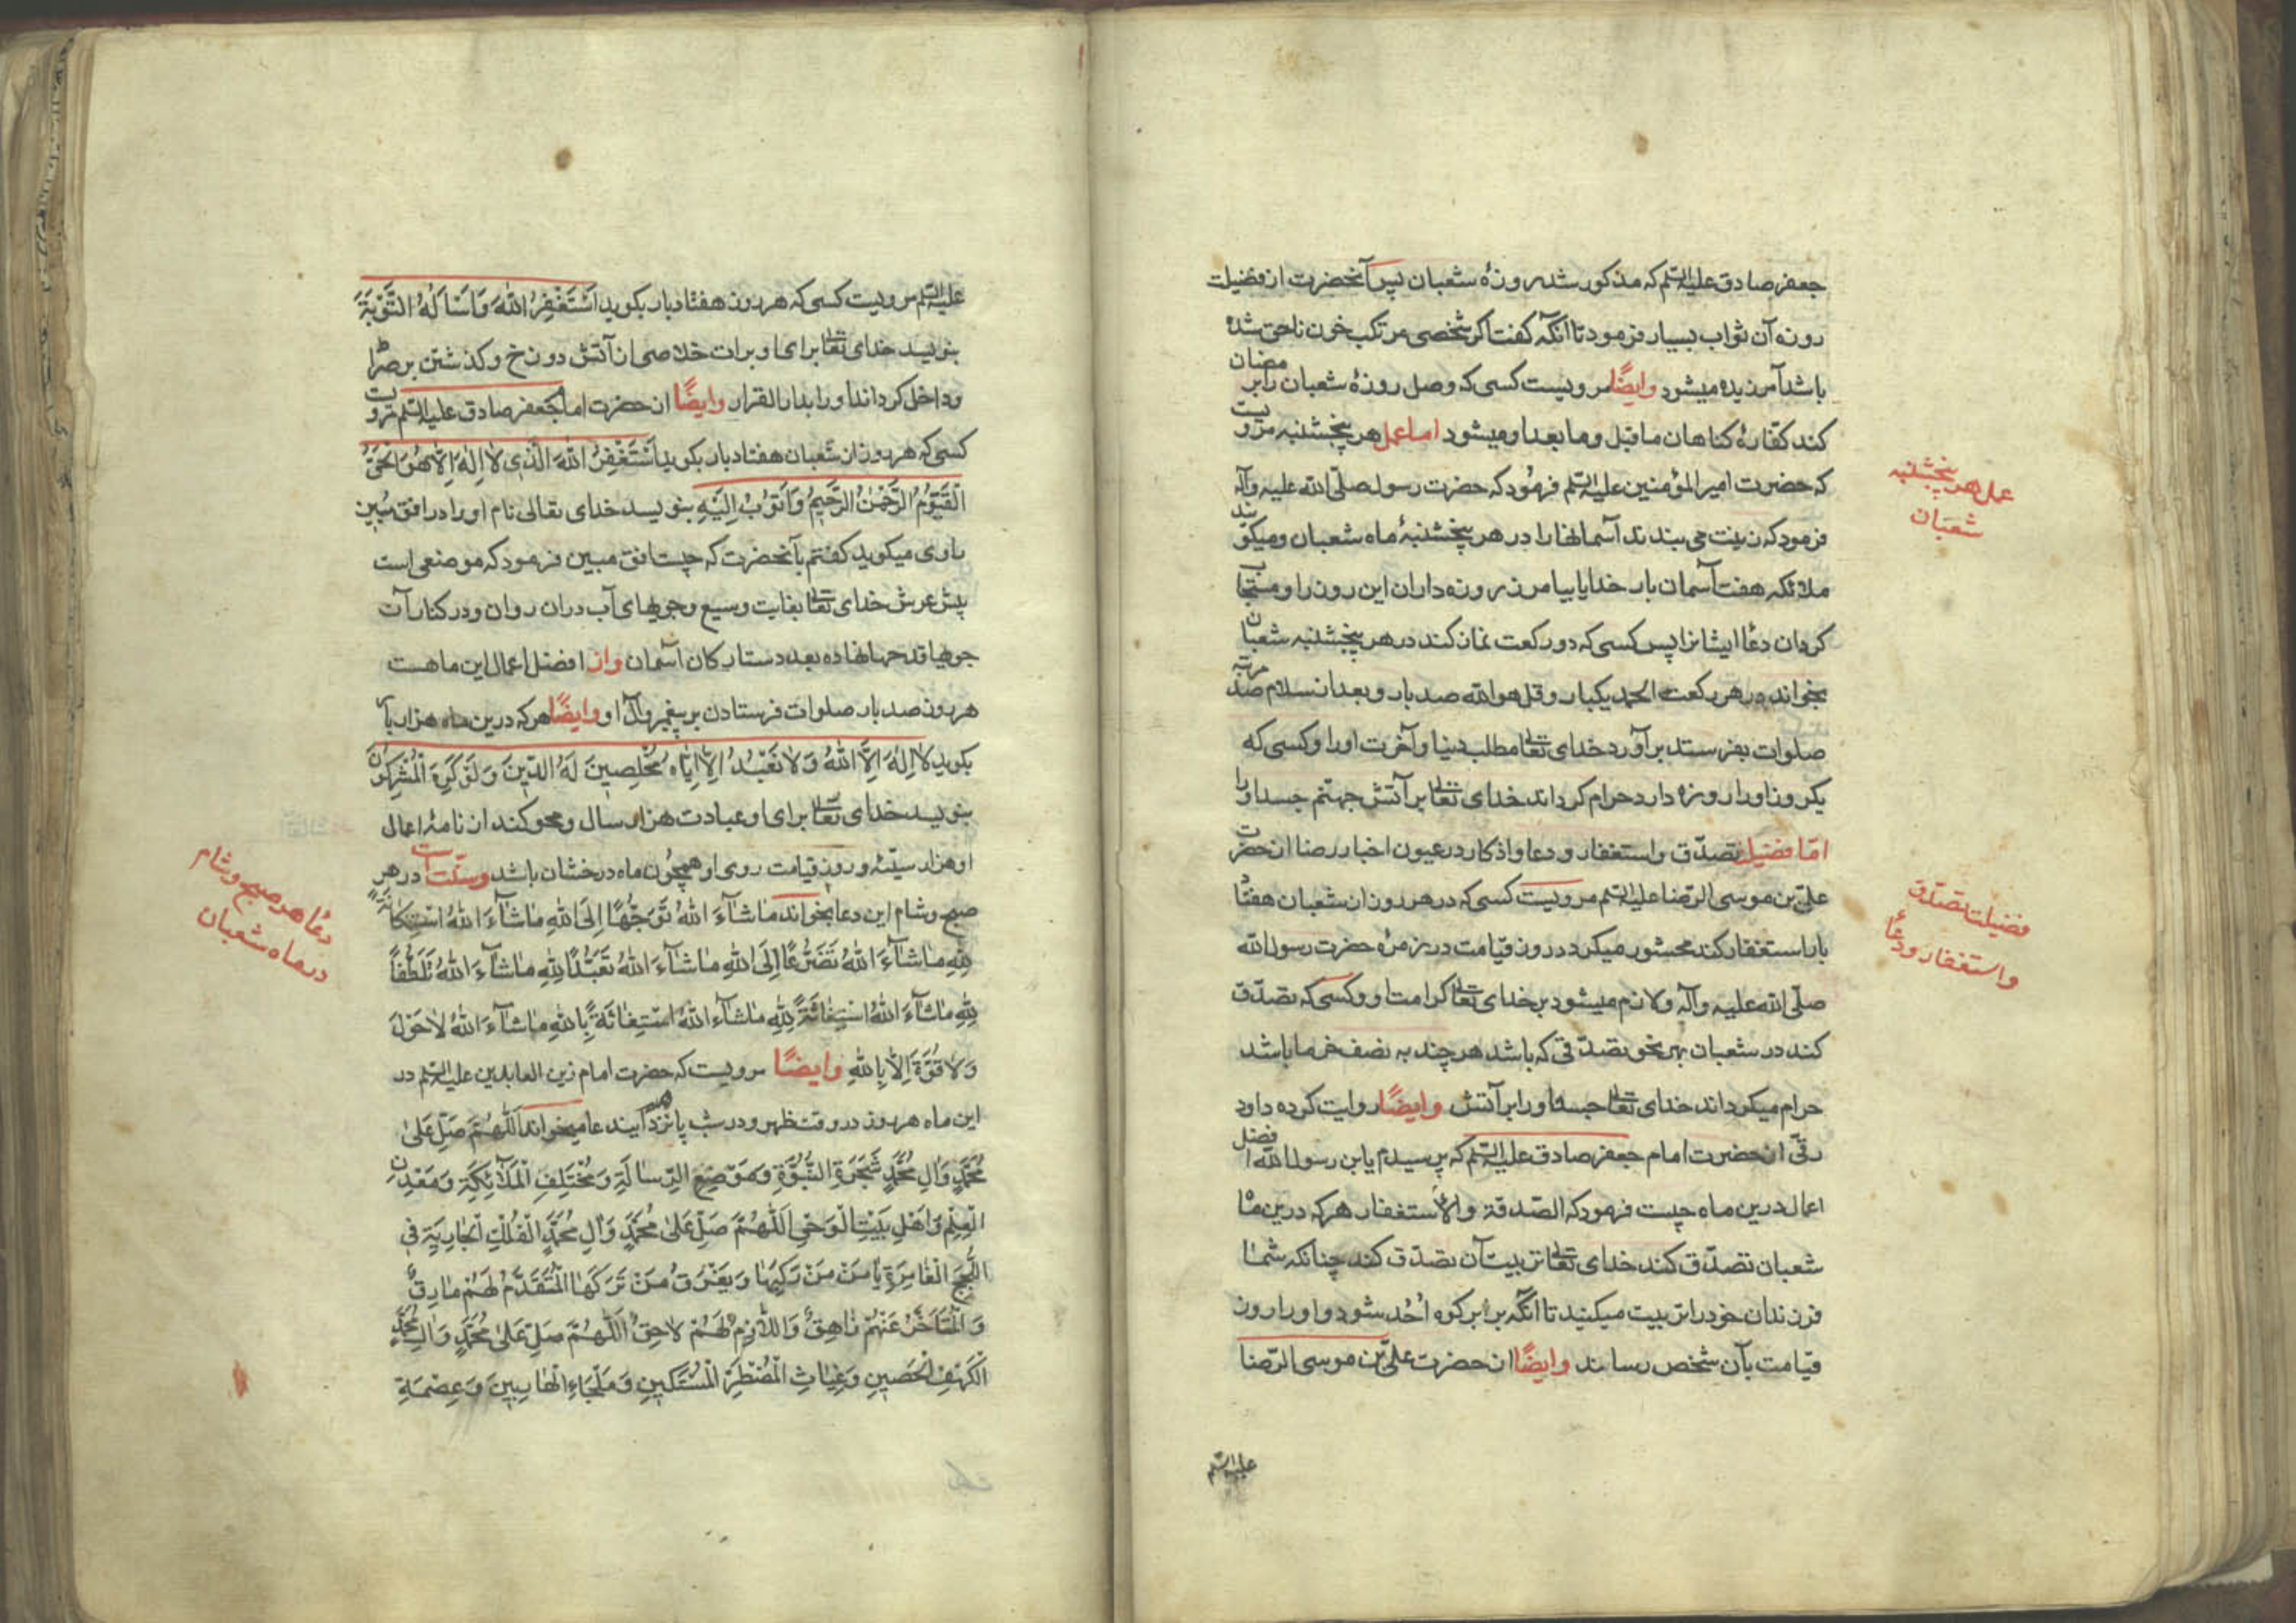 جعفر صادق علیه السّلم که مذکور شد روزهٔ شعبان پس آنحضرت از فضیلت
روزه آن ثواب بسیار فرمود تا آنکه کفت اکر شخصی مرتکب خون ناحق شده
باشد آمرزیده میشود وایضًا مرویست کسی که وصل روزهٔ شعبان رابر مضان
کند کفّارهٔ کناهان ماقبل وما بعد او میشود اما عمل هر پنجشنبه مرویست
که حضرت امیر المؤمنین علیه السّلم فرمود که حضرت رسول صلّی الله علیه وآله
فرمود که زینت می بندند آسمانها را در هر پنجشنبهٔ ماه شعبان ومیکویند
ملائکه هفت آسمان بار خدایا بیامرز روزه داران این روز را ومستجاب
کردان دعا ایشانرا پس کسی که دو رکعت نماز کند در هر پنجشنبه شعبان
بخواند در هر رکعت الحمد یکبار وقل هو الله صد بار وبعد از سلام صد مرتبه
صلوات بفرستد برآورد خدای تعالی مطلب دنیا وآخرت اورا وکسی که
یکروز اورا روزه دارد حرام کرداند خدای تعالی بر آتش جهنّم جسد اورا
امّا فضیلت تصدّق واستغفار ودعا واذکار در عیون اخبار رضا از حضرت
علیّ بن موسی الرّضا علیه السّلم مرویست کسی که در هر روز از شعبان هفتاد
بار استغفار کند محشور میکردد در روز قیامت در زمرهٔ حضرت رسول الله
صلّی الله علیه وآله ولازم میشود بر خدای تعالی کرامت او وکسی که تصدّق
کند در شعبان بهر نحو تصدّقی که باشد هر چند به نصف خرما باشد
حرام میکرداند خدای تعالی جسد او را بر آتش وایضًا روایت کرده داود
رقّی از حضرت امام جعفر صادق علیه السّلم که پرسیدم یابن رسول الله افضل
اعمال درین ماه چیست فرمود که الصّدقة والاستغفار هر که درین ماه
شعبان تصدّق کند خدای تعالی تربیت آن تصدّق کند چنانکه شما
فرزندان خود را تربیت میکنید تا آنکه برابر کوه اُحُد شود و اورا روز
قیامت بآن شخص رساند وایضًا از حضرت علیّ بن موسی الرّضا
علیه السّلم
عمل هر پنجشنبه
شعبان
فضیلت تصدّق
واستغفار ودعا
علیه السّلم مرویست کسی که هر روز هفتاد بار بکوید اَسْتَغْفِرُ اللهَ وَاَسْأَلُهُ التَّوْبَةَ
بنویسد خدای تعالی برای او برات خلاصی از آتش دوزخ وکذشتن بر صراط
وداخل کرداند اورا بدار القرار وایضًا از حضرت امام جعفر صادق علیه السّلم مرویست
کسی که هر روز از شعبان هفتاد بار بکوید اَسْتَغْفِرُ اللهَ الَّذِی لا اِلهَ اِلاّ هُوَ الْحَیُّ
الْقَیُّومُ الرَّحْمنُ الرَّحِیمُ وَاَتُوبُ اِلَیْهِ بنویسد خدای تعالی نام اورا در افق مُبین
راوی میکوید کفتم بآنحضرت که چیست افق مبین فرمود که موضعی است
پیش عرش خدای تعالی بغایت وسیع وجویهای آب در ان روان ودر کنار آن
جویها قدحها نهاده بعدد ستارکان آسمان واز افضل اعمال این ماهست
هر روز صد بار صلوات فرستادن بر پیغمبر وآل او وایضًا هر که درین ماه هزار بار
بکوید لا اِلهَ اِلاَّ اللهُ وَلا نَعْبُدُ اِلاّ اِیّاهُ مُخْلِصِینَ لَهُ الدِّینَ وَلَوْ کَرِهَ الْمُشْرِکُونَ
بنویسد خدای تعالی برای او عبادت هزار سال ومحو کند از نامهٔ اعمال
او هزار سیّئه وروز قیامت روی او همچون ماه درخشان باشد وسنّت است در هر
صبح وشام این دعا بخواند ماشآءَ اللهُ تَوَجُّهًا اِلَی اللهِ ماشآءَ اللهُ اسْتِکانَةً
لِلّهِ ماشآءَ اللهُ تَضَرُّعًا اِلَی اللهِ ماشآءَ اللهُ تَعَبُّدًا لِلّهِ ماشآءَ اللهُ تَلَطُّفاً
لِلّهِ ماشآءَ اللهُ اسْتِغاثَةً لِلّهِ ماشآءَ اللهُ اسْتِغاثَةً بِاللهِ ماشآءَ اللهُ لا حَوْلَ
وَلا قُوَّةَ اِلاّ بِاللهِ وایضًا مرویست که حضرت امام زین العابدین علیه السّلم در
این ماه هر روز در وقت ظهر ودر شب پانزدهم ایندعا میخواند اَللّهُمَّ صَلِّ عَلی
مُحَمَّدٍ وَآلِ مُحَمَّدٍ شَجَرَةِ النُّبُوَّةِ وَمَوْضِعِ الرِّسالَةِ وَمُخْتَلَفِ الْمَلآئِکَةِ وَمَعْدِنِ
الْعِلْمِ وَاَهْلِ بَیْتِ الْوَحْیِ اَللّهُمَّ صَلِّ عَلی مُحَمَّدٍ وَآلِ مُحَمَّدٍ الْفُلْكِ الْجارِیَةِ فِی
اللُّجَجِ الْغامِرَةِ یَأْمَنُ مَنْ رَکِبَها وَیَغْرَقُ مَنْ تَرَکَهَا الْمُتَقَدِّمُ لَهُمْ مارِقٌ
وَالْمُتَأَخِّرُ عَنْهُمْ زاهِقٌ وَاللاّزِمُ لَهُمْ لاحِقٌ اَللّهُمَّ صَلِّ عَلی مُحَمَّدٍ وَآلِ مُحَمَّدٍ
الْکَهْفِ الْحَصِینِ وَغِیاثِ الْمُضْطَرِّ الْمُسْتَکِینِ وَمَلْجَاءِ الْهارِبِینَ وَعِصْمَةِ
دعا هر صبح وشام
در ماه شعبان